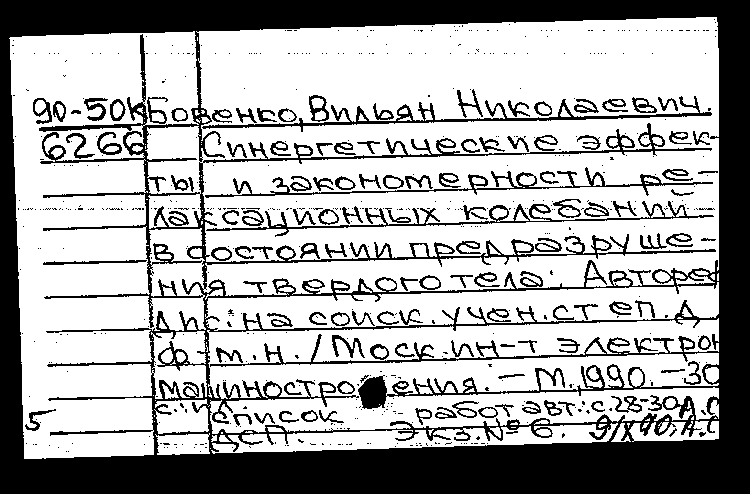 90-50К Бовенко, Вильян Николаевич.
6266 Синергетические эффек-
ты и закономерности ре-
лаксационных колебаний
в состоянии предразруше-
ния твердого тела: Автореф
дис. на соиск. учен. степ. д
ф.-м.н. / Моск. ин-т электрон
машиностроения. - М., 1990. - 30
с. Список работ авт.: с. 28-30
5 ДСП. Экз. № 6.